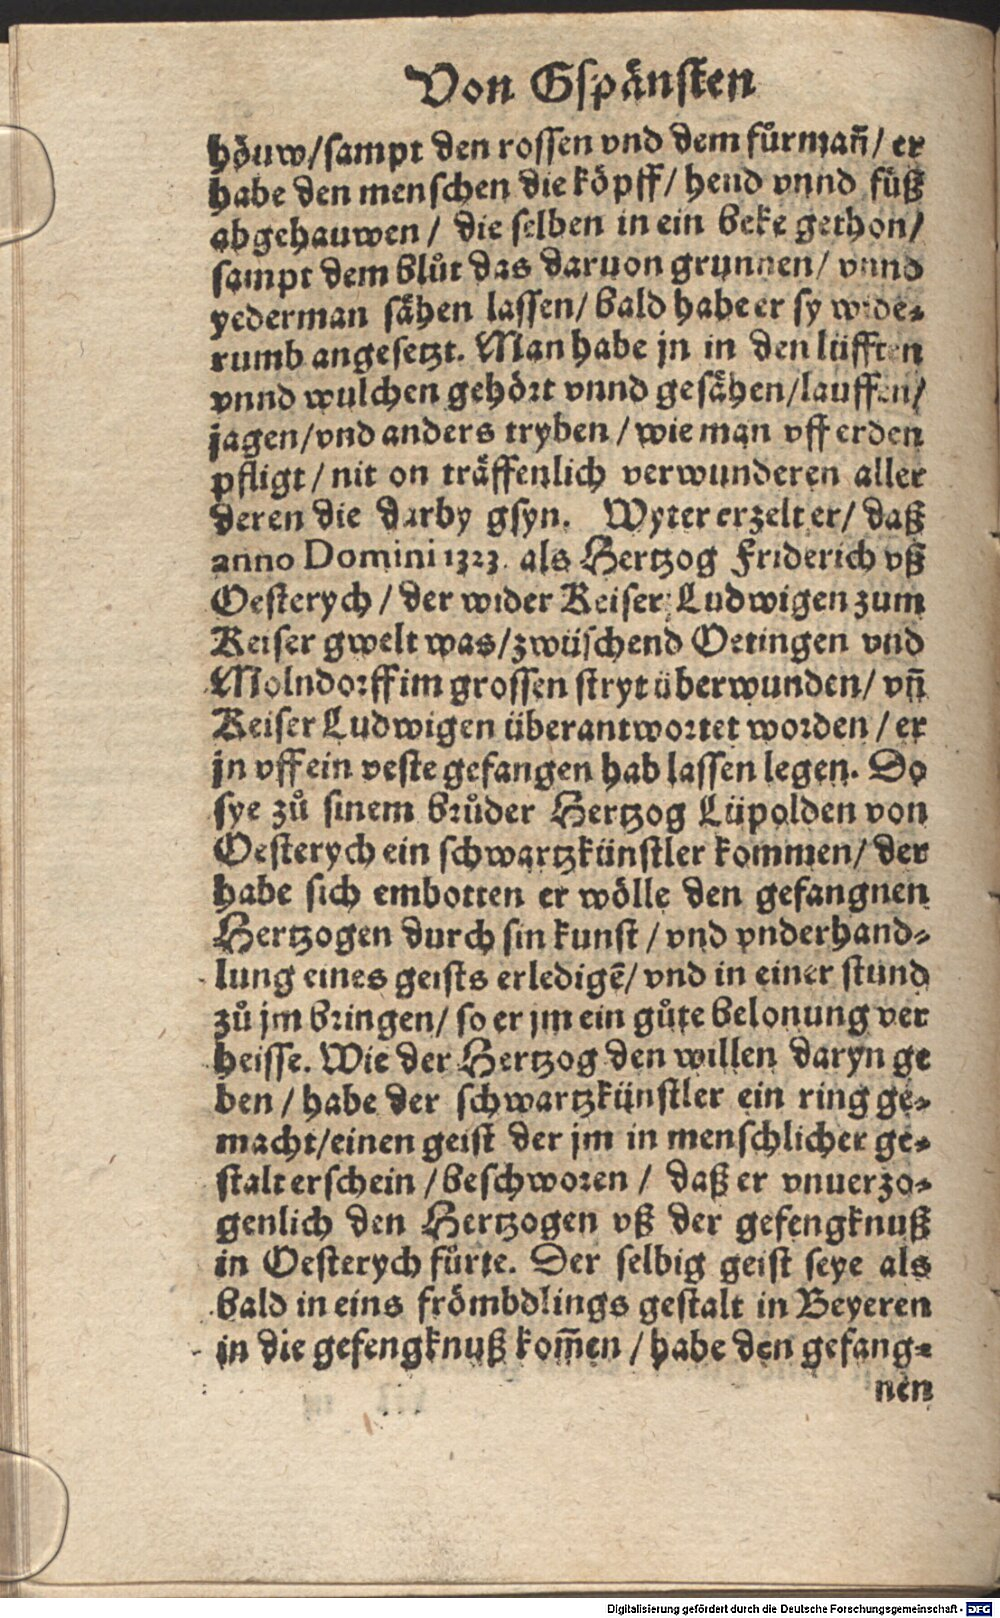 Von Gspänsten
höuw/sampt den rossen vnd dem fůrmañ/ er
habe den menschen die köpff/ hend vnnd füß
abgehauwen/ die selben in ein beke gethon/
sampt dem blůt das daruon grunnen/ vnnd
yederman sähen lassen/ bald habe er sy wide⸗
rumb angesetzt. Man habe jn in den lüfften
vnnd wulchen gehört vnnd gesähen/lauffen/
jagen/vnd anders tryben/ wie man vff erden
pfligt/ nit on träffenlich verwunderen aller
deren die darby gsyn. Wyter erzelt er/ daß
anno Domini 1323. als Hertzog Friderich vß
Oesterych/ der wider Keiser Ludwigen zum
Keiser gwelt was/zwüschend Oetingen vnd
Molndorff im grossen stryt überwunden/ vñ
Keiser Ludwigen überantwortet worden/ er
jn vff ein veste gefangen hab lassen legen. Do
sye zů sinem brůder Hertzog Lüpolden von
Oesterych ein schwartzkünstler kommen/ der
habe sich embotten er wölle den gefangnen
Hertzogen durch sin kunst/ vnd vnderhand⸗
lung eines geists erledigē/ vnd in einer stund
zů jm bringen/ so er jm ein gůte belonung ver
heisse. Wie der Hertzog den willen daryn ge
ben/ habe der schwartzkünstler ein ring ge⸗
macht/einen geist der jm in menschlicher ge⸗
stalt erschein/ beschworen/ daß er vnuerzo⸗
genlich den Hertzogen vß der gefengknuß
in Oesterych fůrte. Der selbig geist seye als
bald in eins frömbdlings gestalt in Beyeren
in die gefengknuß kom̃en/ habe den gefang⸗
nen
Digitalisierung gefördert durch die Deutsche Forschungsgemeinschaft - DFG